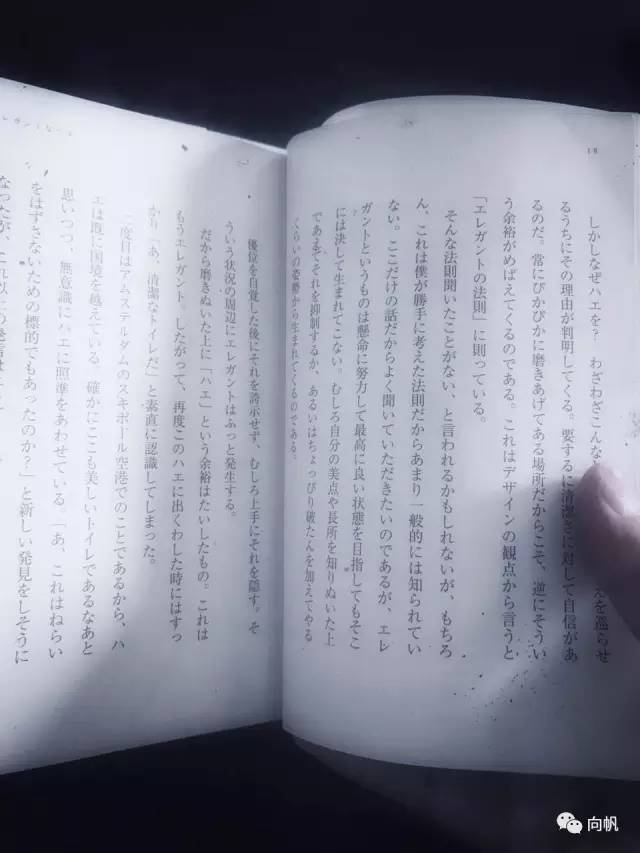 18
しかしなぜハエを？　わざわざこんな えを巡らせ
るうちにその理由が判明してくる。要するに清潔さに対して自信があ
るのだ。常にぴかぴかに磨きあげてある場所だからこそ、逆にそうい
う余裕がめばえてくるのである。これはデザインの観点から言うと
「エレガントの法則」に則っている。
そんな法則聞いたことがない、と言われるかもしれないが、もちろ
ん、これは僕が勝手に考えた法則だからあまり一般的には知られてい
ない。ここだけの話だからよく聞いていただきたいのであるが、エレ
ガントというものは懸命に努力して最高に良い状態を目指してもそこ
には決して生まれてこない。むしろ自分の美点や長所を知りぬいた上
であえてそれを抑制するか、あるいはちょっぴり破たんを加えてやる
くらいの姿勢から生まれてくるのである。
優位を自覚した後にそれを誇示せず、むしろ上手にそれを隠す。そ
ういう状況の周辺にエレガントはふっと発生する。
だから磨きぬいた上に「ハエ」という余裕はたいしたもの。これは
もうエレガント。したがって、再度このハエに出くわした時にはすっ
かり「あ、清潔なトイレだ」と素直に認識してしまった。
二度目はアムステルダムのスキポール空港でのことであるから、ハ
エは既に国境を越えている。確かにここも美しいトイレであるなあと
思いつつ、無意識にハエに照準をあわせている。「あ、これはねらい
をはずさないための標的でもあったのか？」と新しい発見をしそうに
なったが、これ以上の
向帆